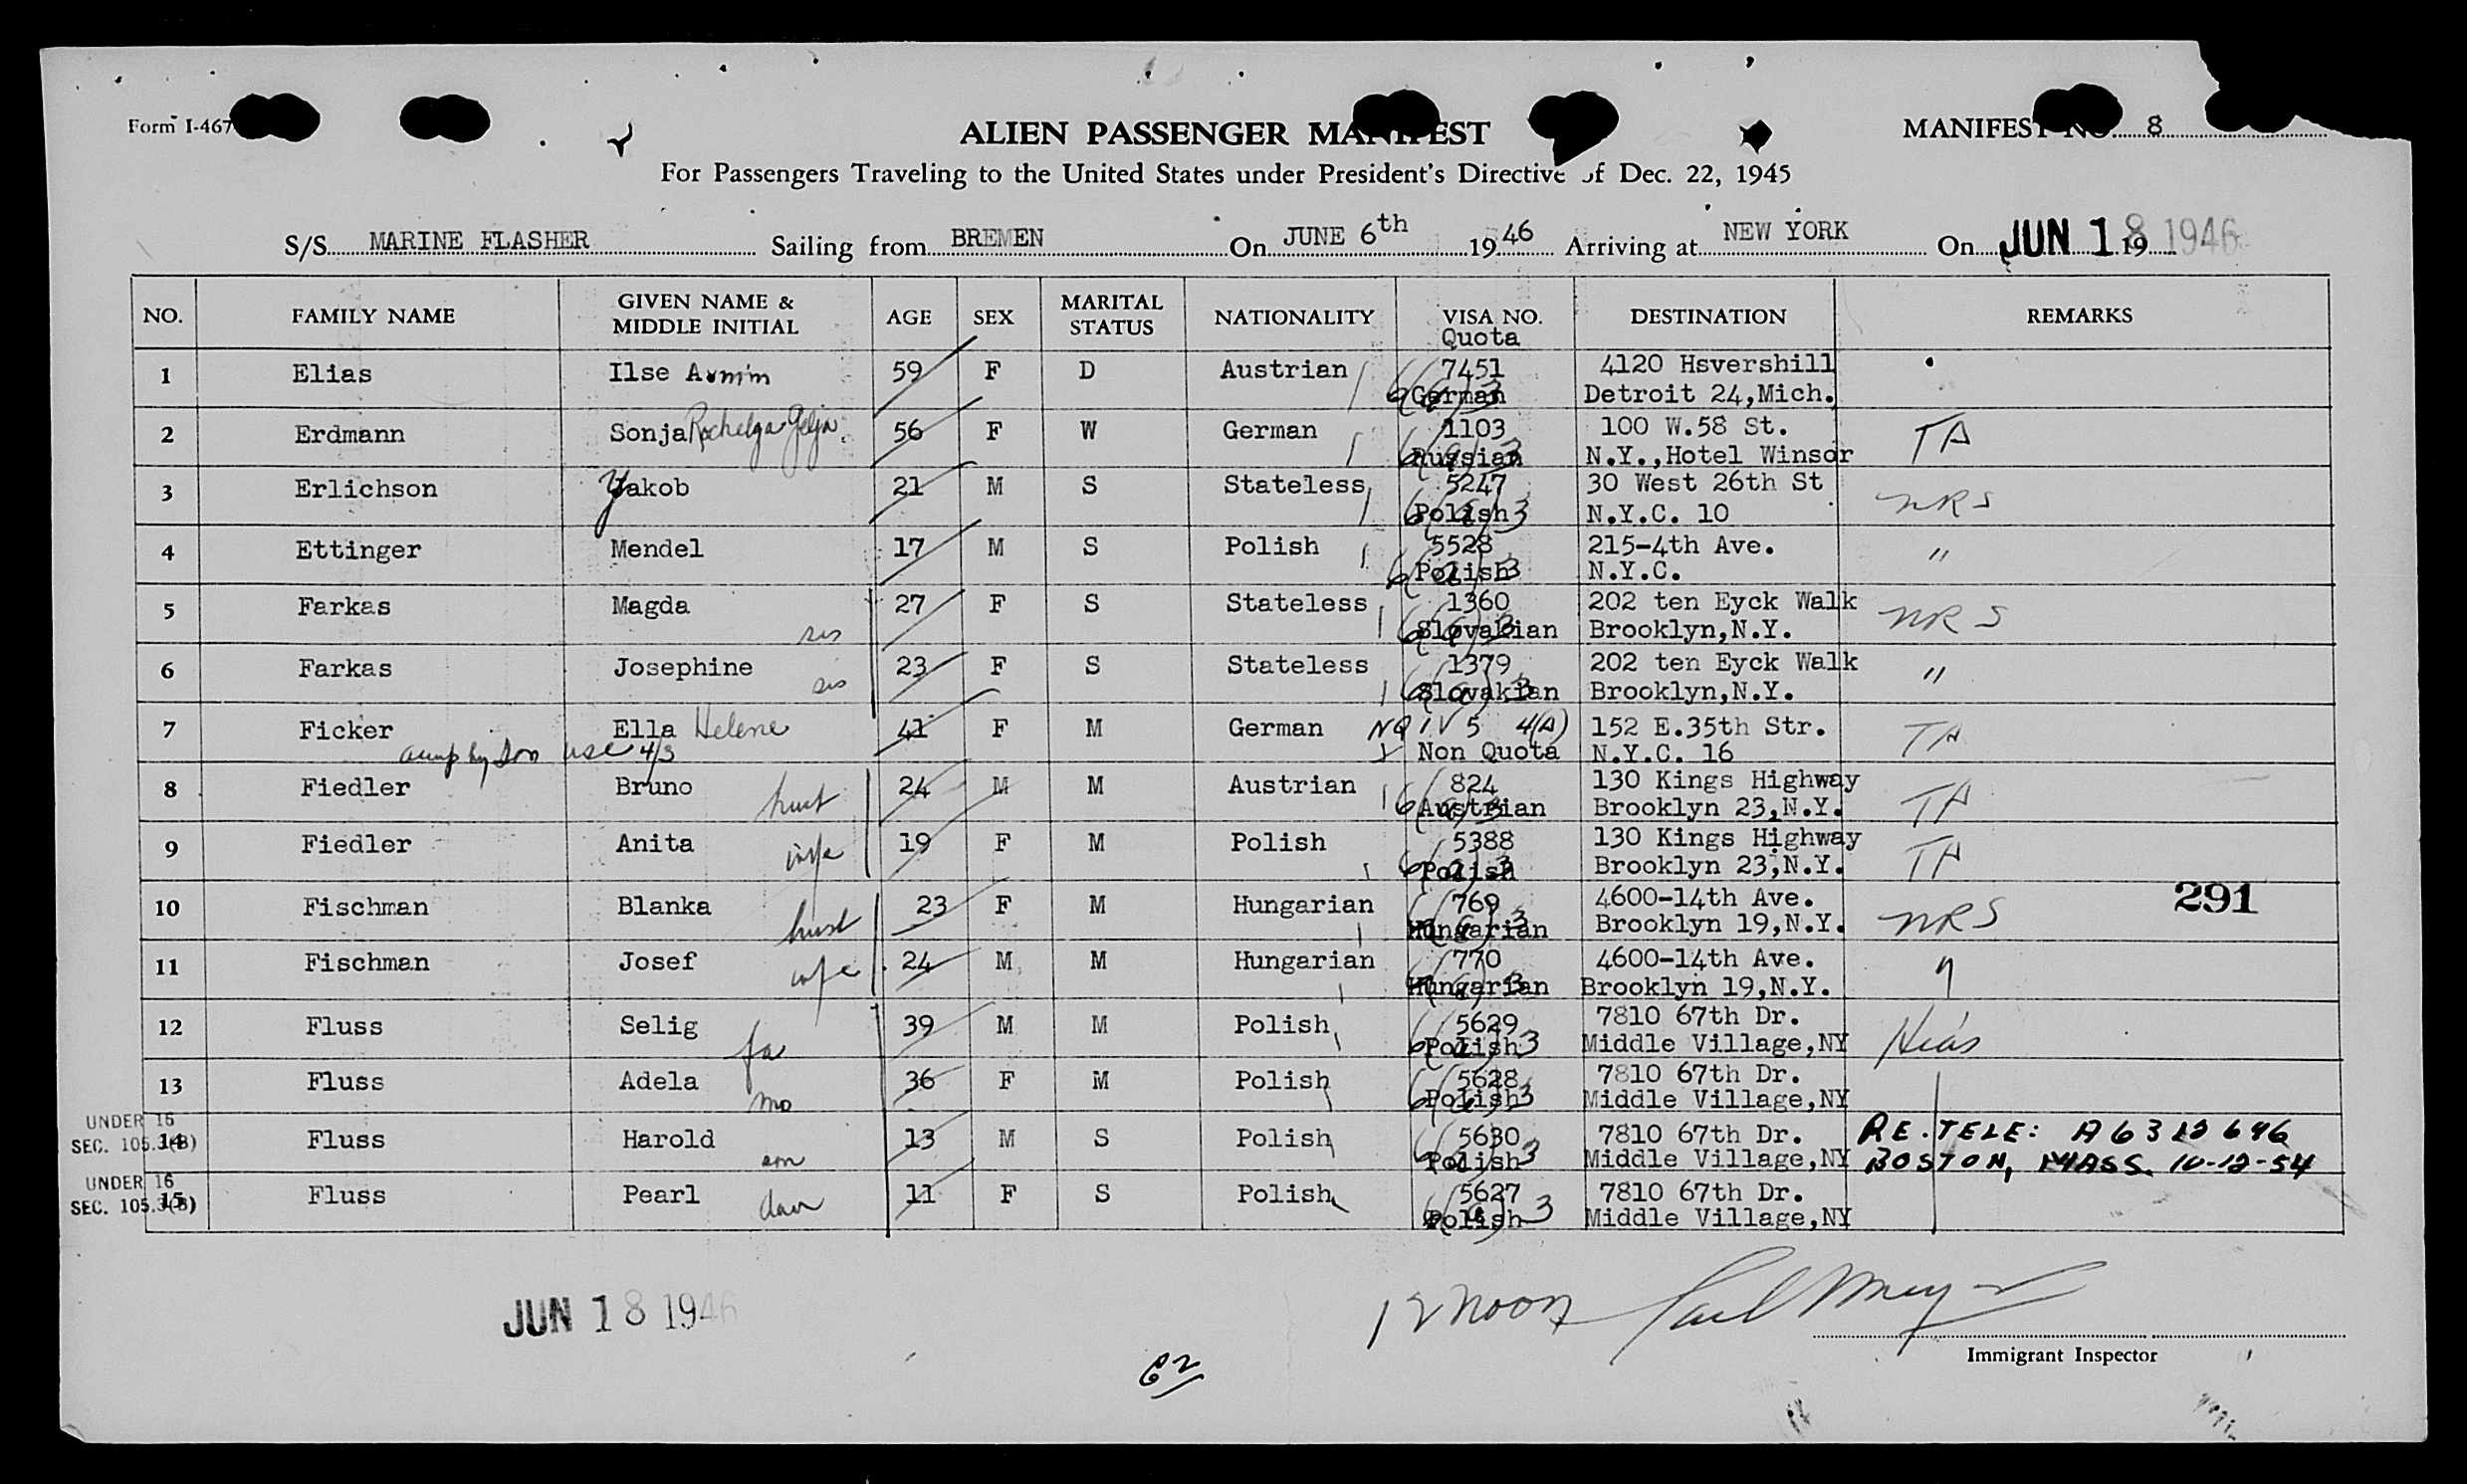 Form I-467
ALIEN PASSENGER MANIFEST
MANIFEST NO. 8
For Passengers Traveling to the United States under President's Directive of Dec. 22, 1945
S/S MARINE FLASHER Sailing from BREMEN On JUNE 6th 1946 Arriving at NEW YORK On JUN 18 19 1946
NO. FAMILY NAME GIVEN NAME & MIDDLE INITIAL AGE SEX MARITAL STATUS NATIONALITY VISA NO. Quota DESTINATION REMARKS
1 Elias Ilse 59 F D Austrian 7451 4120 Hsvershill
German Detroit 24,Mich.
2 Erdmann Sonja 56 F W German 1103 100 W.58 St. TA
Russian N.Y.,Hotel Winsor
3 Erlichson Yakob 21 M S Stateless 5247 30 West 26th St NRS
Polish N.Y.C. 10
4 Ettinger Mendel 17 M S Polish 5528 215-4th Ave. "
Polish N.Y.C.
5 Farkas Magda 27 F S Stateless 1360 202 ten Eyck Walk NRS
sis Slovakian Brooklyn,N.Y.
6 Farkas Josephine 23 F S Stateless 1379 202 ten Eyck Walk "
sis Slovakian Brooklyn,N.Y.
7 Ficker Ella Helene 41 F M German NQIV 5 4(A) 152 E.35th Str. TA
by son usc 4/3 Non Quota N.Y.C. 16
8 Fiedler Bruno 24 M M Austrian 824 130 Kings Highway TA
Austrian Brooklyn 23,N.Y.
9 Fiedler Anita wife 19 F M Polish 5388 130 Kings Highway TA
Polish Brooklyn 23,N.Y.
10 Fischman Blanka 23 F M Hungarian 769 4600-14th Ave. NRS 291
Hungarian Brooklyn 19,N.Y.
11 Fischman Josef wife 24 M M Hungarian 770 4600-14th Ave. "
Hungarian Brooklyn 19,N.Y.
12 Fluss Selig 39 M M Polish 5629 7810 67th Dr. Hias
fa Polish Middle Village,NY
13 Fluss Adela 36 F M Polish 5628 7810 67th Dr.
mo Polish Middle Village,NY
UNDER 16
SEC. 105.3(B) 14 Fluss Harold 13 M S Polish 5630 7810 67th Dr. RE. TELE:
son Polish Middle Village,NY BOSTON, MASS. 10-12-54
UNDER 16
SEC. 105.3(B) 15 Fluss Pearl 11 F S Polish 5627 7810 67th Dr.
dau Polish Middle Village,NY
JUN 18 1946
12 noon
Immigrant Inspector
62